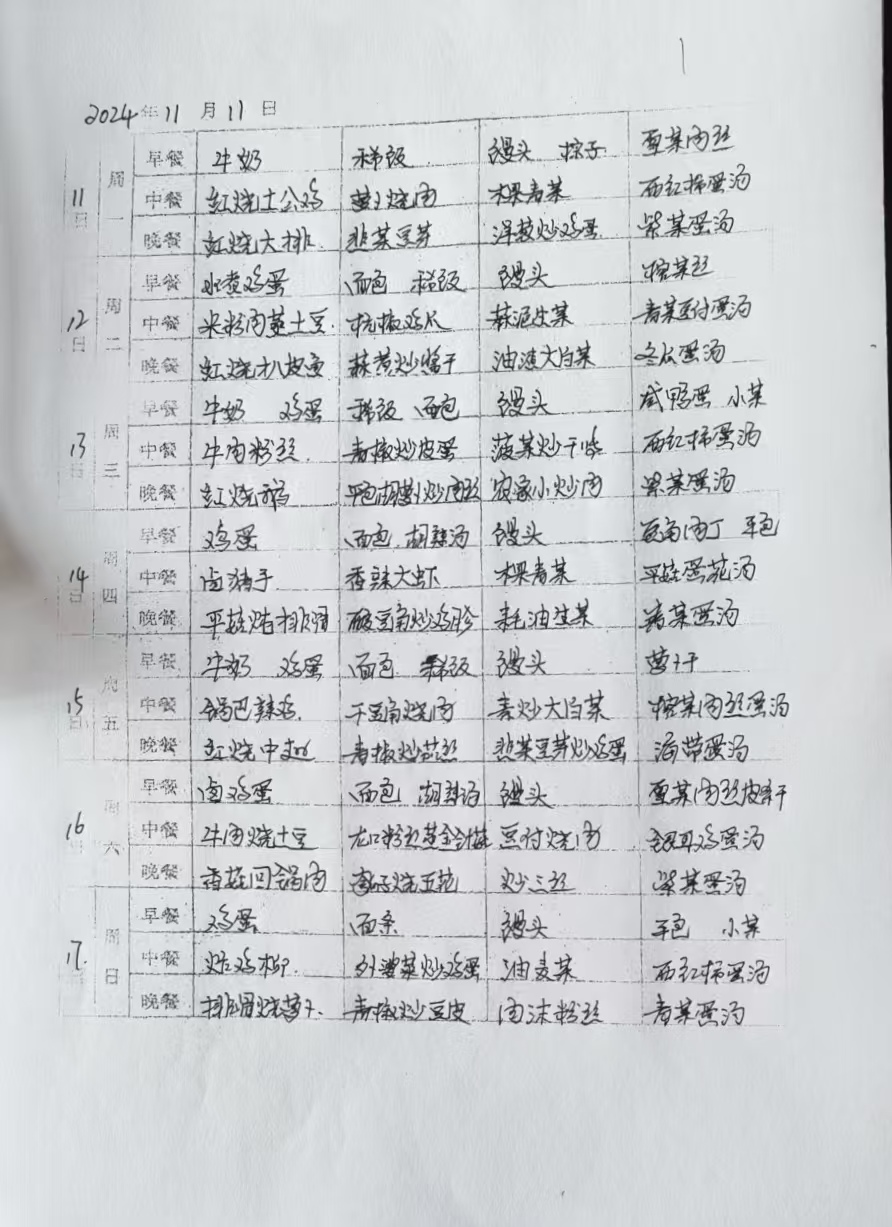 2024年11月11日
11日 周一 早餐 牛奶 稀饭 馒头 粽子 雪菜肉丝
中餐 红烧土公鸡 萝卜烧肉 棵青菜 西红柿蛋汤
晚餐 红烧大排 韭菜豆芽 洋葱炒鸡蛋 紫菜蛋汤
12日 周二 早餐 水煮鸡蛋 面包 稀饭 馒头 榨菜丝
中餐 米粉肉蒸土豆 杭椒鸡片 蒜泥生菜 青菜豆付蛋汤
晚餐 红烧扒皮鱼 蒜黄炒香干 油渣大白菜 冬瓜蛋汤
13日 周三 早餐 牛奶 鸡蛋 稀饭 面包 馒头 咸鸭蛋 小菜
中餐 牛肉粉丝 青椒炒皮蛋 菠菜炒千张 西红柿蛋汤
晚餐 红烧 胡萝卜炒肉丝 农家小炒肉 紫菜蛋汤
14日 周四 早餐 鸡蛋 面包 胡辣汤 馒头 豆角肉丁
中餐 卤猪手 香辣大虾 棵青菜 平菇蛋花汤
晚餐 平菇炖排骨 酸豆角炒鸡胗 耗油生菜 青菜蛋汤
15日 周五 早餐 牛奶 鸡蛋 面包 稀饭 馒头 萝卜干
中餐 锅巴辣鸡 干豆角烧肉 素炒大白菜 榨菜肉丝蛋汤
晚餐 红烧中翅 青椒炒 韭菜豆芽炒鸡蛋 海带蛋汤
16日 周六 早餐 卤鸡蛋 面包 胡辣汤 馒头 雪菜肉丝
中餐 牛肉烧土豆 龙口粉丝蒸金针菇 豆付烧肉 银耳鸡蛋汤
晚餐 香菇回锅肉 烧五花 炒三丝 紫菜蛋汤
17日 周日 早餐 鸡蛋 面条 馒头 小菜
中餐 炸鸡柳 外婆菜炒鸡蛋 油麦菜 西红柿蛋汤
晚餐 排骨烧萝卜 青椒炒豆皮 肉沫粉丝 青菜蛋汤